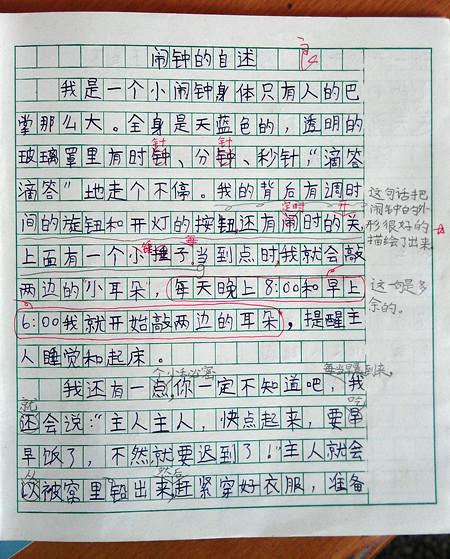 闹钟的自述
我是一个小闹钟身体只有人的巴
掌那么大。全身是天蓝色的，透明的
针 针
玻璃罩里有时钟、分钟、秒针，“滴答
滴答”地走个不停。我的背后有调时
定时 开
间的旋钮和开灯的按钮还有闹时的关
锤 每
上面有一个小捶子，当到点时，我就会敲
两边的小耳朵，每天晚上8:00和早上
6:00我就开始敲两边的耳朵，提醒主
人睡觉和起床。
个小秘密 每当早晨到来，
我还有一点，你一定不知道吧，我
就 吃
还会说：“主人主人，快点起来，要吊
早饭了，不然就要迟到了！”主人就会
从 然后
以被窝里钻出来赶紧穿好衣服，准备
这句话把
闹钟的外
形很好的
描绘了出来
这一句是多
余的。